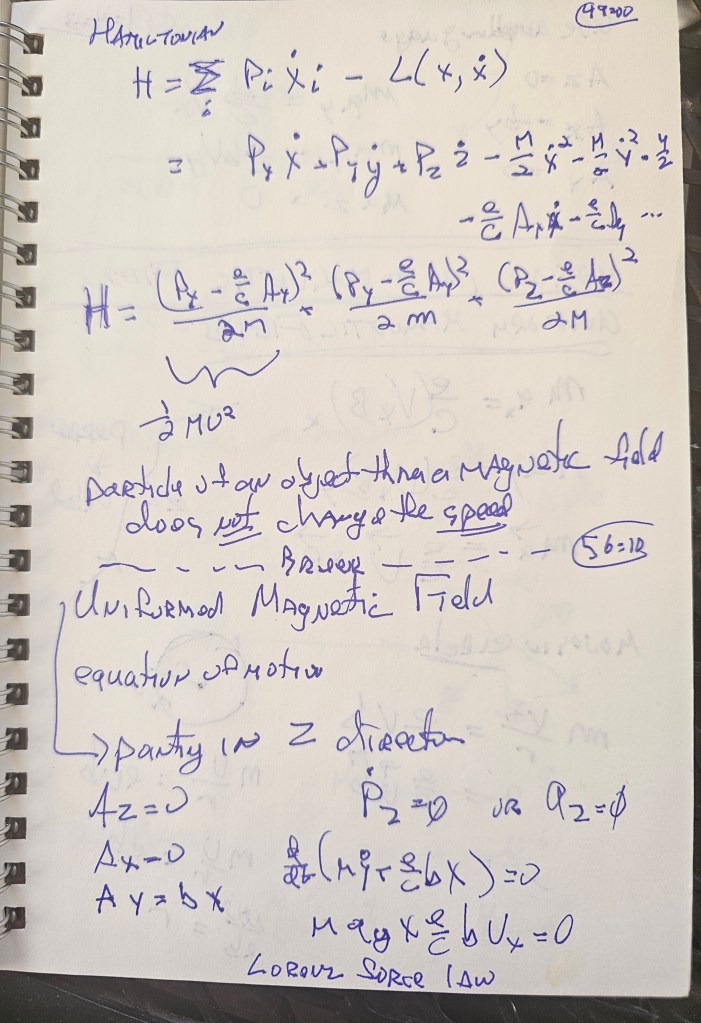 99:00
HAMILTONIAN
H = Σᵢ Pᵢ ẋᵢ − L(x, ẋ)
= Pₓ ẋ + P_y ẏ + P_z ż − M/2 ẋ² − M/2 ẏ²
− e/c Aₓ ẋ − e/c A_y ...
H = (Pₓ − e/c Aₓ)²/2M + (P_y − e/c A_y)²/2m + (P_z − e/c A_z)²/2M
1/2 MU²
particle of an object thru a MAgnetic field
does not change the speed
— — - - Break — - - - — 56:18
UNIFORMED MAGNetic Field
equation of motion
→ pointing IN Z direction
Az=0 Ṗz=0 or az=0
Ax=0 d/dt(Mẏ + e/c bx)=0
Ay=bx
May + e/c b Ux=0
LORENZ FORCE LAW